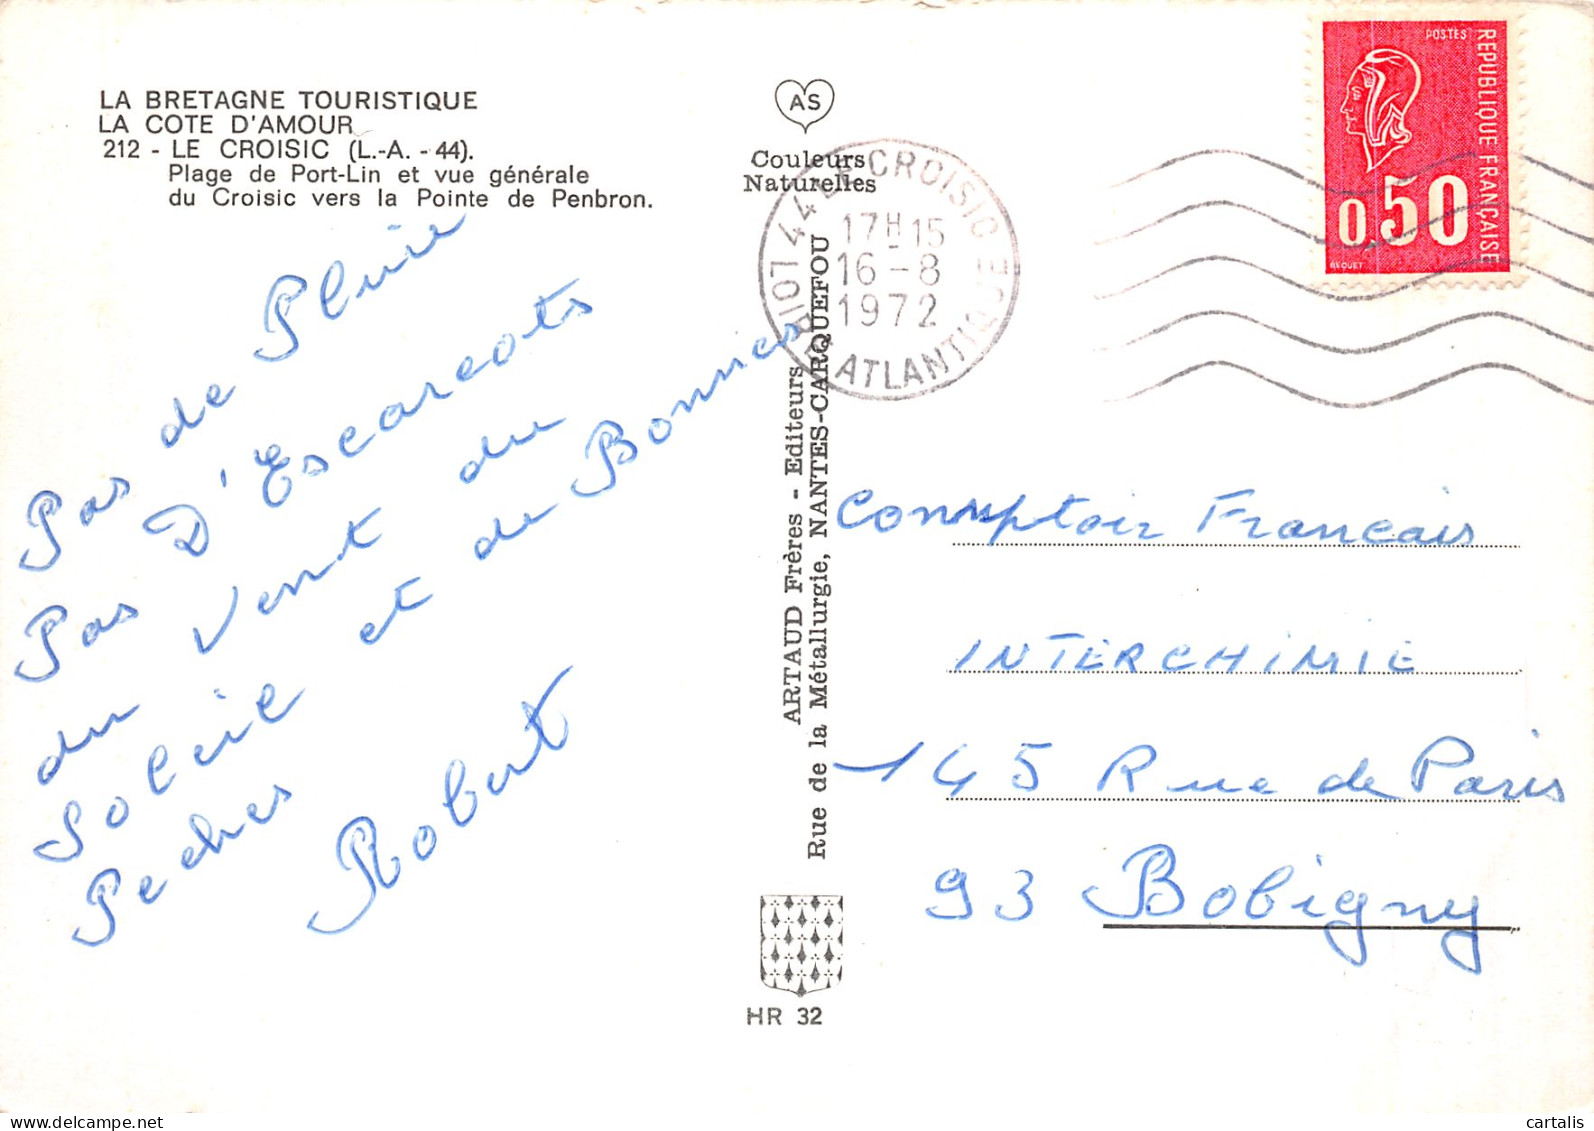 LA BRETAGNE TOURISTIQUE
LA COTE D'AMOUR
212 - LE CROISIC (L.-A. - 44).
Plage de Port-Lin et vue générale
du Croisic vers la Pointe de Penbron.
Pas de Pluie
D'Escarcots
Pas Vent du
du
Soleil et de Bonnes
Peches
Robert
AS
Couleurs
Naturelles
ARTAUD Frères - Editeurs
Rue de la Métallurgie, NANTES-CARQUEFOU
HR 32
44 LE CROISIC
17H15
16-8
1972
LOIRE ATLANTIQUE
POSTES
REPUBLIQUE FRANÇAISE
0,50
BEQUET
Comptoir Francais
INTERCHIMIE
145 Rue de Paris
93 Bobigny
cartalis
delcampe.net